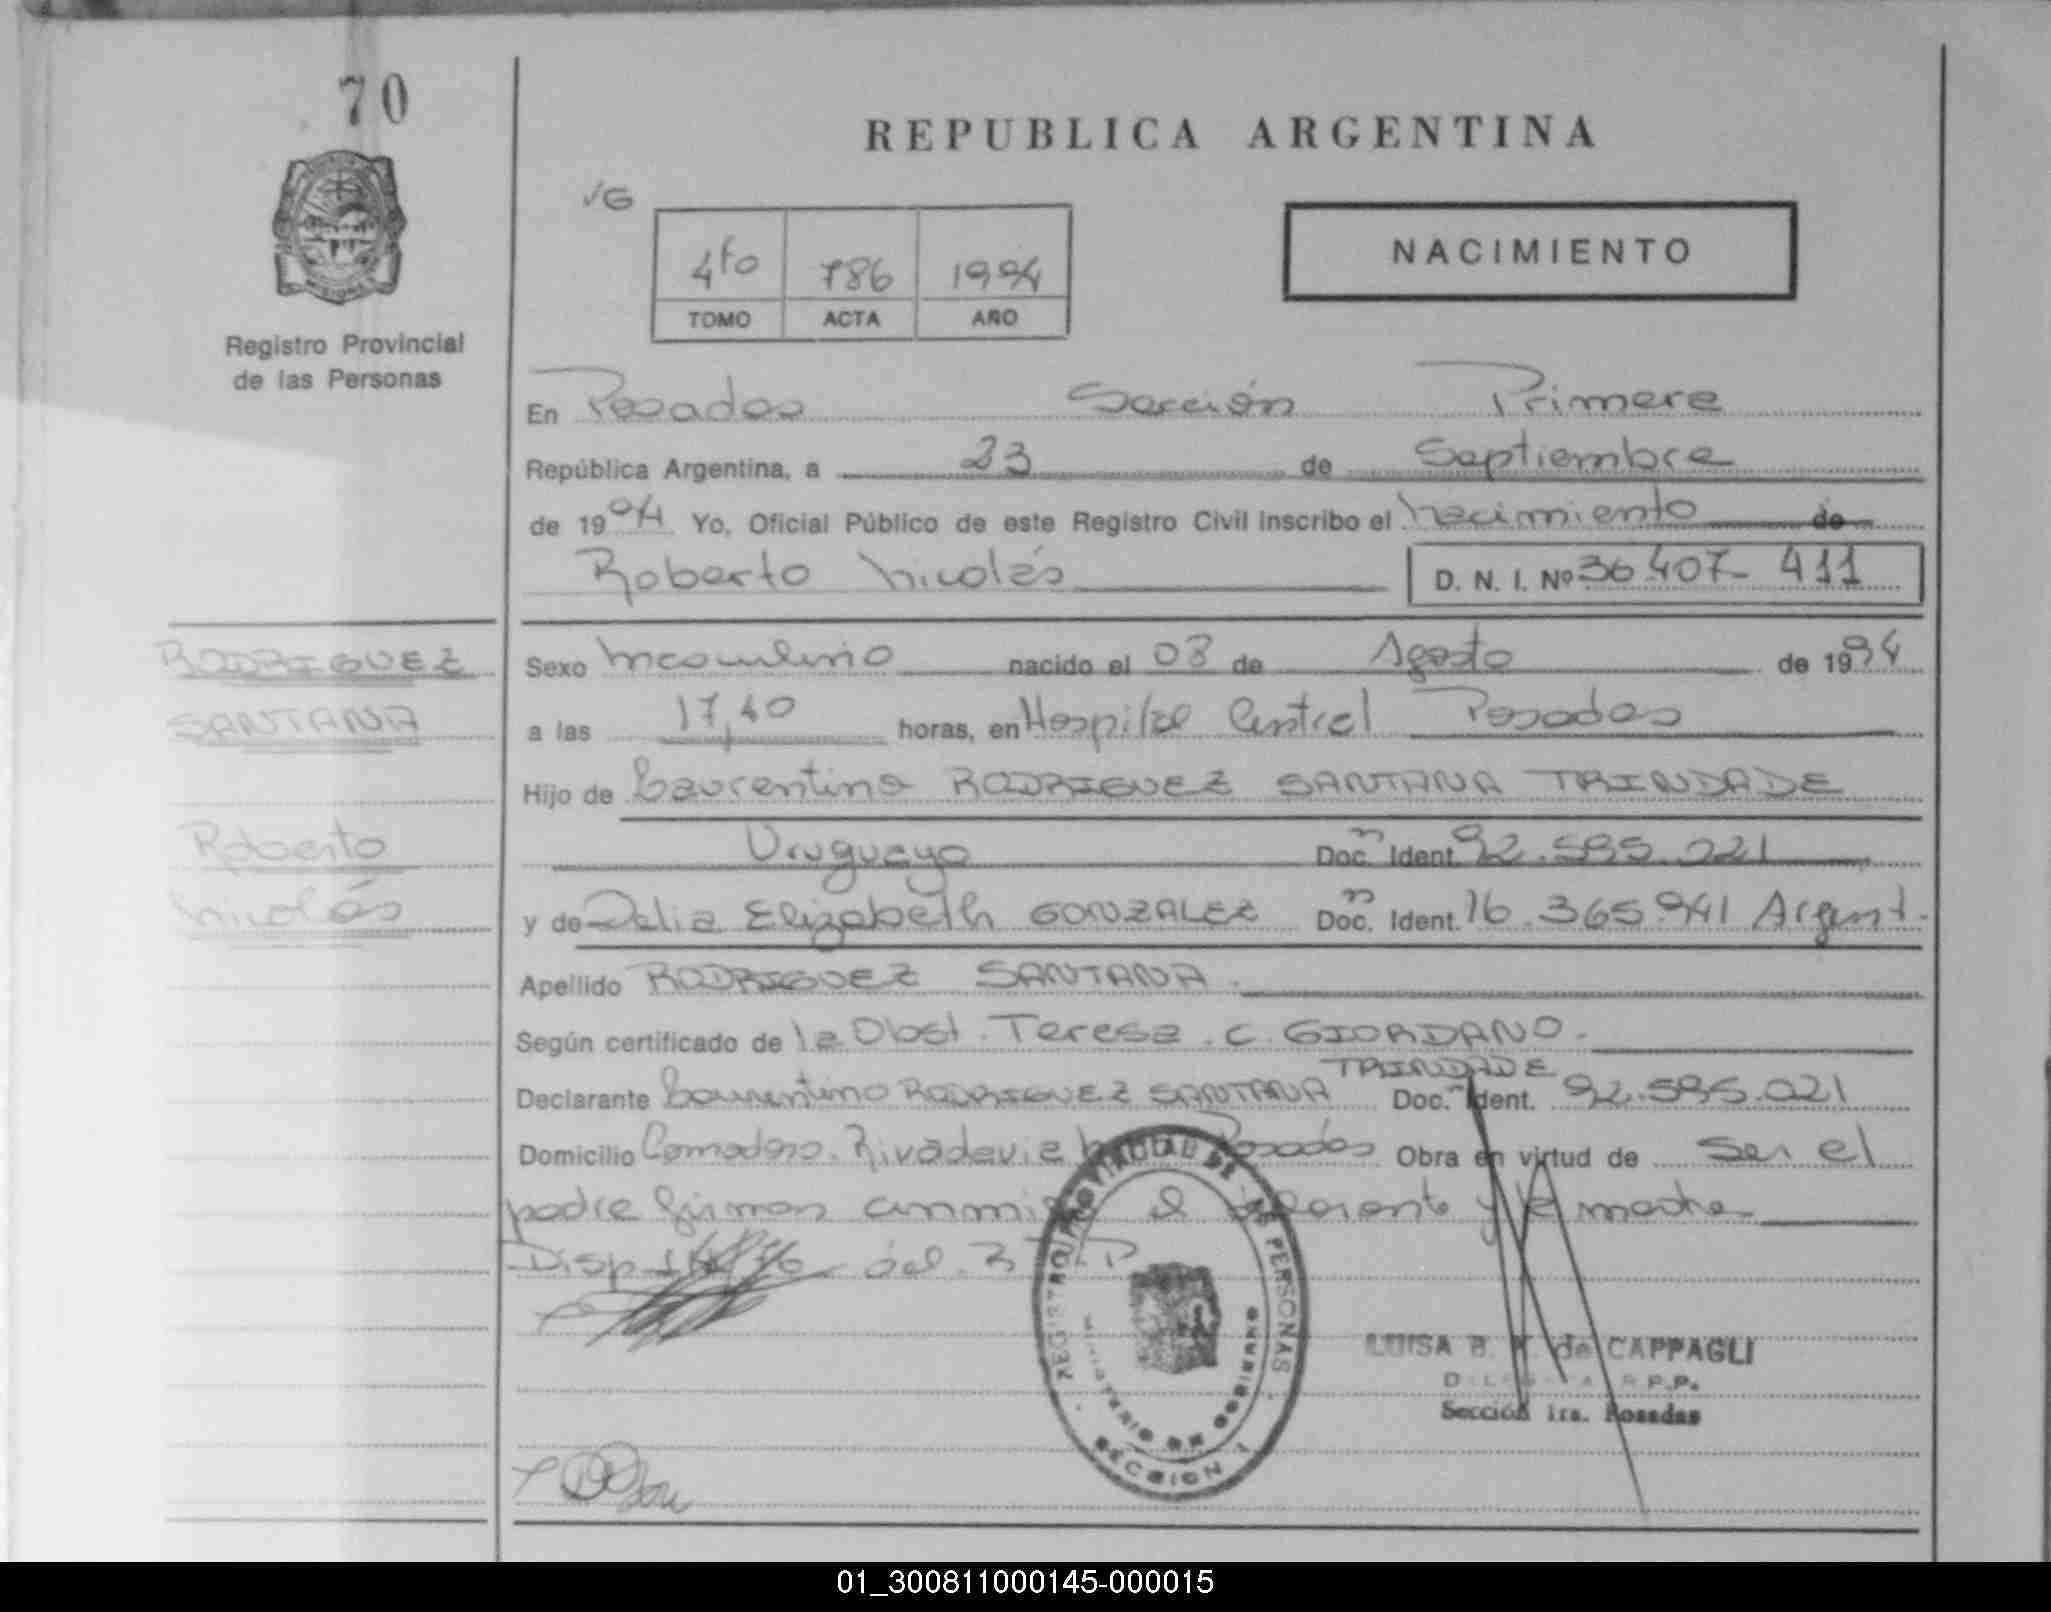 70
REPUBLICA ARGENTINA
VG
4to 786 1994
TOMO ACTA AÑO
NACIMIENTO
MISIONES
Registro Provincial
de las Personas
En Posadas Sección Primera
República Argentina, a 23 de Septiembre
de 1994 Yo, Oficial Público de este Registro Civil inscribo el nacimiento de
Roberto Nicolás D. N. I. Nº 36.407-411
RODRIGUEZ
SANTANA
Roberto
Nicolás
Sexo Masculino nacido el 08 de Agosto de 1994
a las 17,40 horas, en Hospital Central Posadas
Hijo de Laurentino RODRIGUEZ SANTANA TRINDADE
Uruguayo Doc. Ident. 92.595.021
y de Delia Elizabeth GONZALEZ Doc. Ident. 16.365.941 Argent.
Apellido RODRIGUEZ SANTANA.
Según certificado de la Obst. Teresa. C. GIORDANO.
Declarante Laurentino RODRIGUEZ SANTANA TRINDADE Doc. Ident. 92.595.021
Domicilio Comodoro. Rivadavia Posadas Obra en virtud de ser el
padre firman conmigo el declarante y la madre
Disp del. R P P
REGISTRO PROVINCIAL DE LAS PERSONAS
MINISTERIO DE GOBIERNO
SECCION 1
LUISA B. de CAPPAGLI
R.P.P.
Sección 1ra. Posadas
01_300811000145-000015